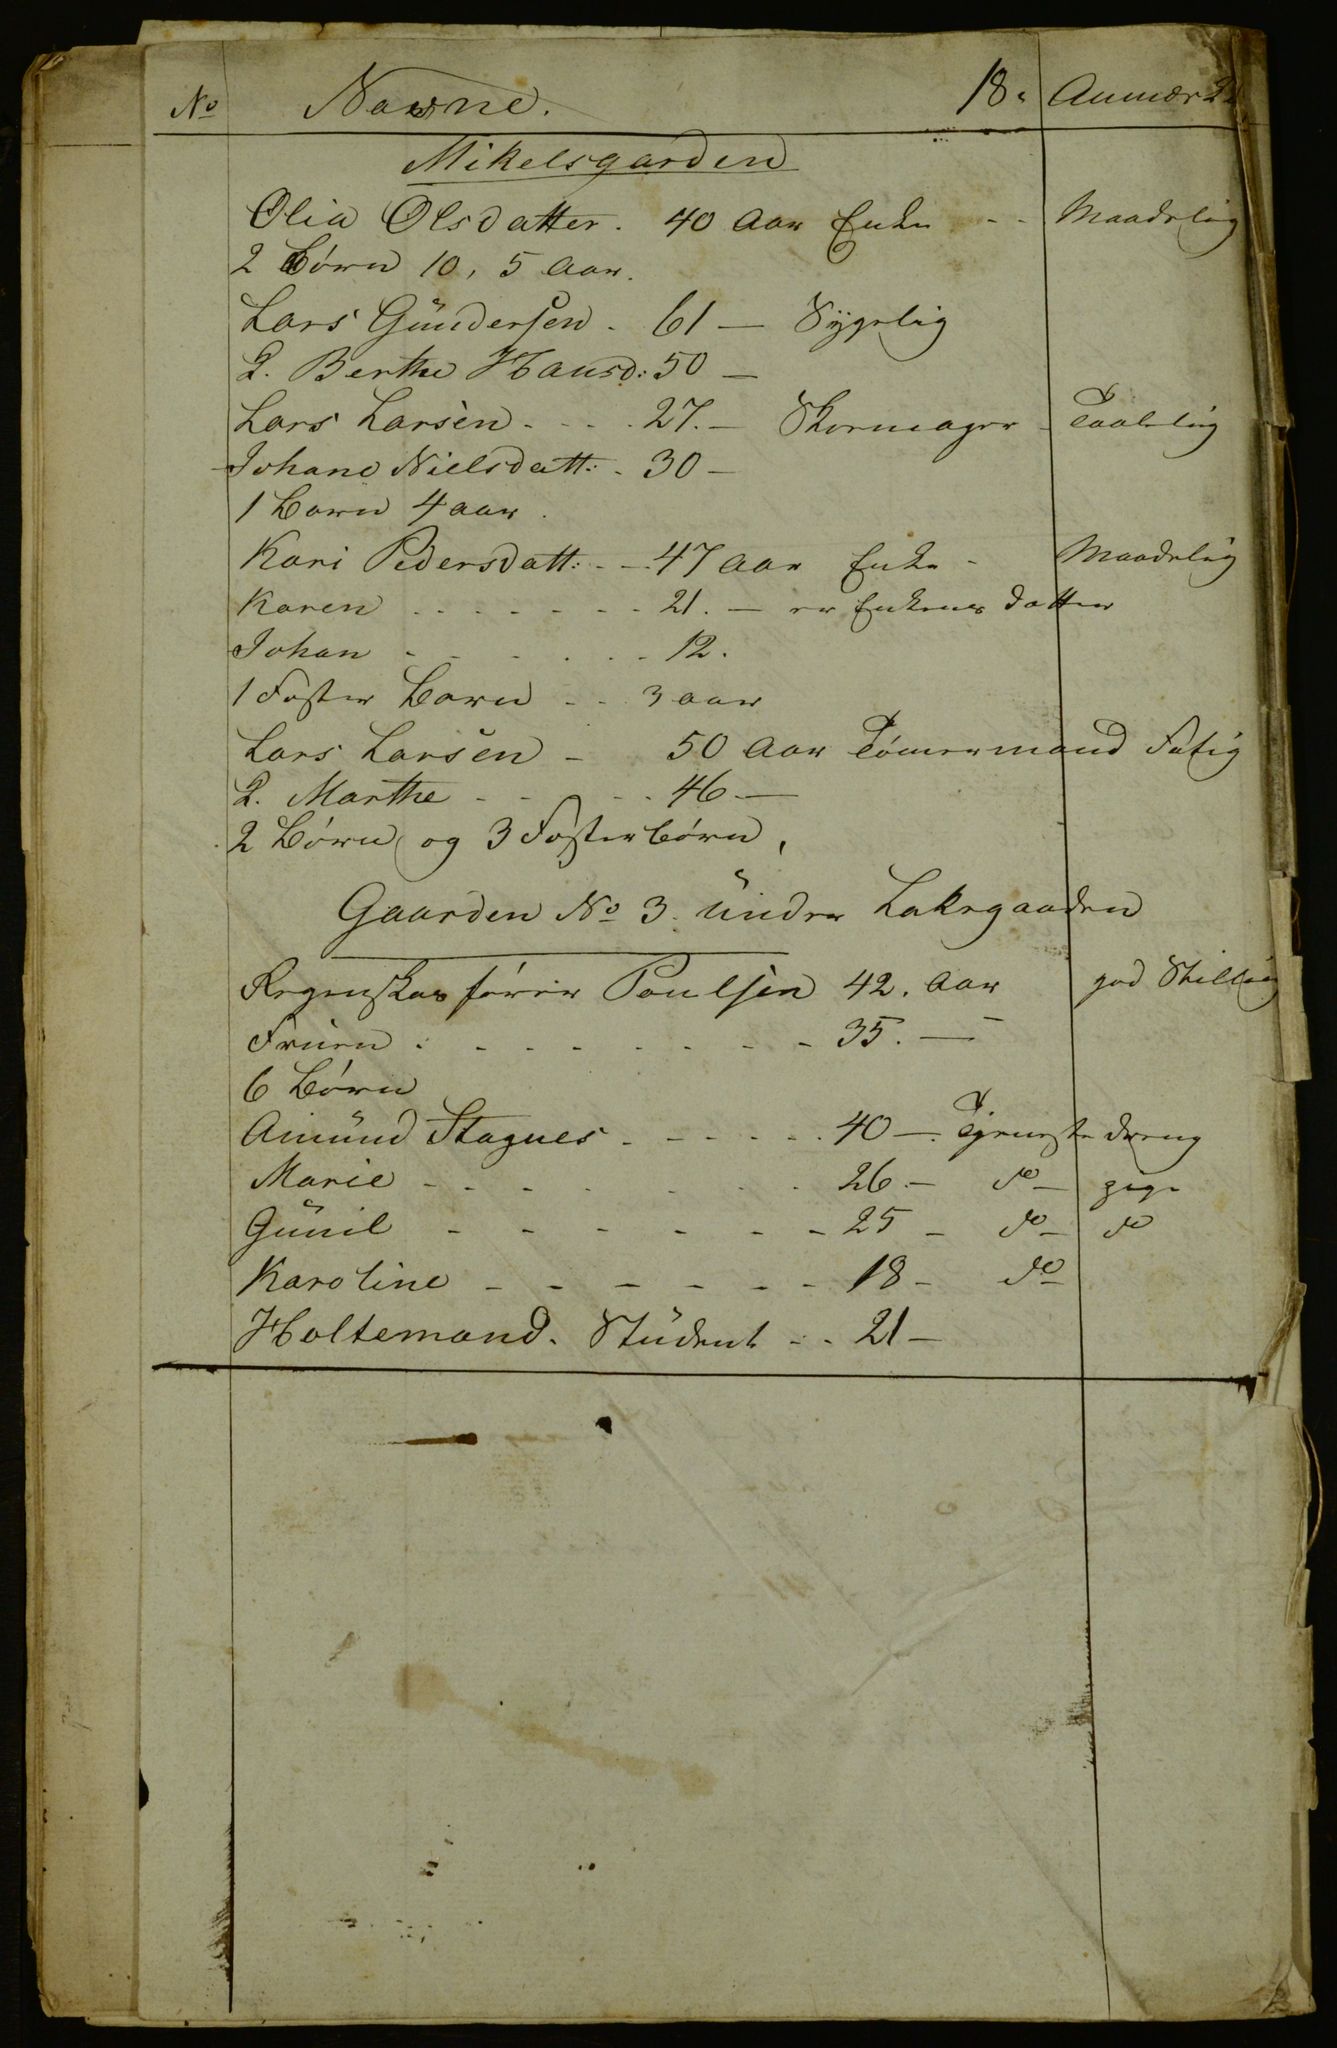 No Navne. 18. Anmærk
Mikelsgaarden
Olia Olsdatter. 40 Aar Enke - - Maadelig
2 Børn 10, 5 Aar.
Lars Gündersen - 61 — Sÿgelig
K. Berthe Hansd: 50 —
Lars Larsen - - - 27. — Skomager - Taalelig
Johane Nielsdatt: - 30 -
1 Barn 4 aar.
Kari Pedersdatt: - - 47 aar Enke - Maadelig
Karen - - - - - - - 21. — er Enkens datter
Johan - - - - - - - 12.
1 Foster Barn - - 3 aar
Lars Larsen - 50 Aar Tømermand Fatig
K. Marthe - - - - 46 —
2 Børn og 3 Fosterbørn,
Gaarden No 3. ünder Lakegaaden
Regenskasfører Poulsen 42. Aar god Stilling
Früen - - - - - - - - 35. —
6 Børn
Amünd Stagnes - - - - - 40 — Tjeneste dreng
Marie - - - - - - - 26. — do — pige
Günil - - - - - - - 25 - do - do
Karoline - - - - - - 18 - do
Holtemand. Stüdent - - 21 —